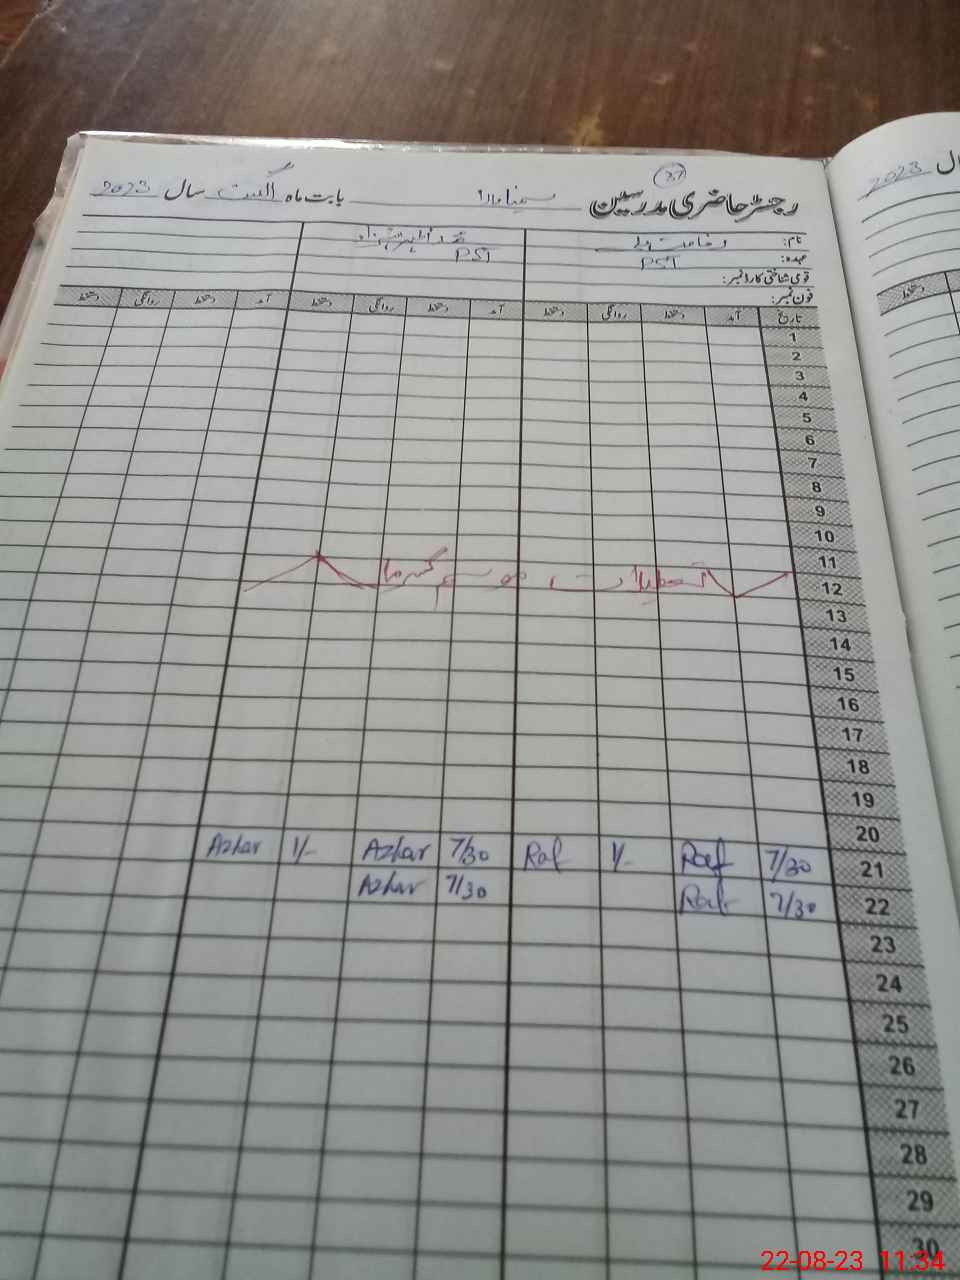 27
رجسٹر حاضری مدرسین بابت ماہ اگست سال 2023
نام:
عہدہ: PST PST
قومی شناختی کارڈ نمبر:
فون نمبر:
تاریخ آمد دستخط روانگی دستخط آمد دستخط روانگی دستخط آمد دستخط روانگی دستخط
1
2
3
4
5
6
7
8
9
10
11
تعطیلات موسم گرما
12
13
14
15
16
17
18
19
20
21 7/30 Raf 1/- Raf 7/30 Azhar 1/- Azhar
22 7/30 Raf 7/30 Azhar
23
24
25
26
27
28
29
30
سال 2023
دستخط
22-08-23 11:34